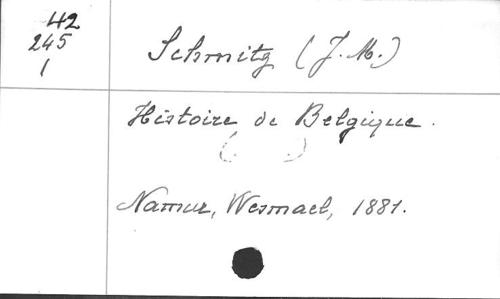 42
245
1
Schmitz (J. M.)
Histoire de Belgique.
( )
Namur, Wesmael, 1881.